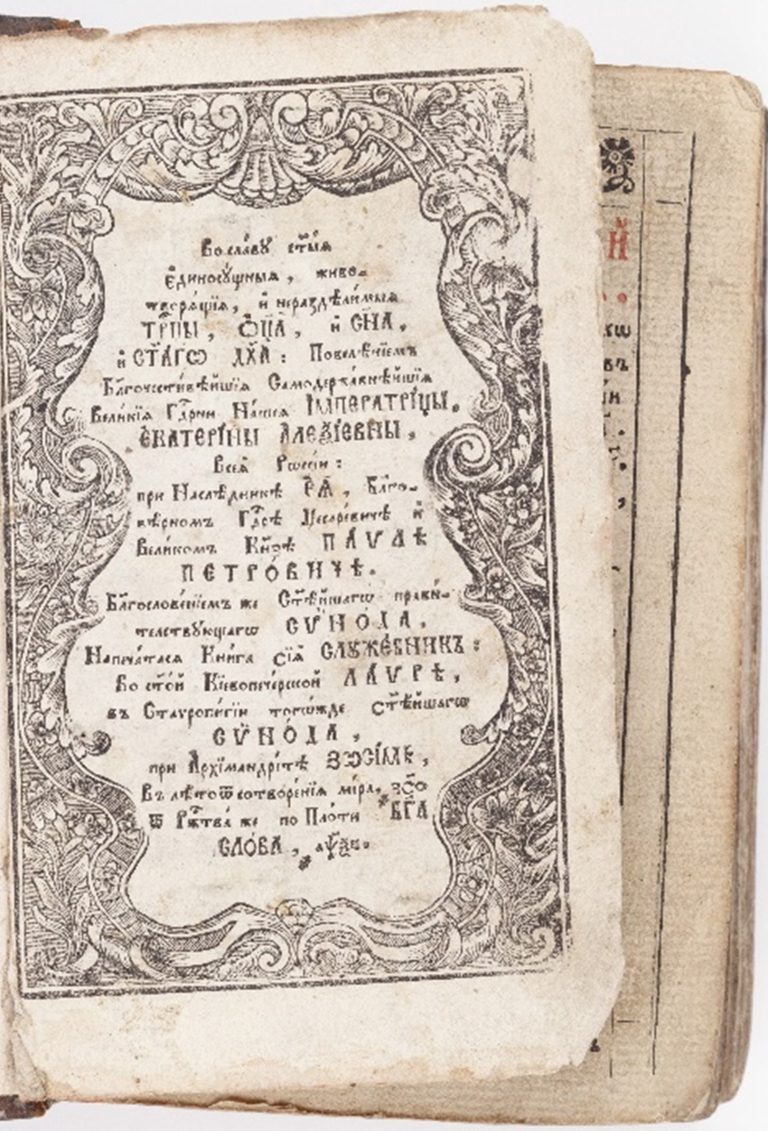 Во славу ст҃ыѧ
є҆диносꙋ́щныѧ, живо-
творѧ́щїѧ, и҆ нераздѣли́мыѧ
ТРЦ҃Ы, Ѻ҆Ц҃А̀, и҆ СН҃А,
и҆ СТ҃А́ГѠ ДХ҃А: Повелѣ́нїемъ
Бл҃гочести́вѣйшїѧ Самодержа́внѣйшїѧ
Вели́кїѧ Гдⷭ҇рни На́шеѧ І҆МПЕРАТРИ́ЦЫ,
Є҆КАТЕРИ́НЫ АЛЕѮІ́ЕВНЫ,
Всеѧ̀ Рѡссі́и:
при Наслѣ́дникѣ Є҆Ѧ̀, Бл҃го-
вѣ́рномъ Гдⷭ҇рѣ Цесаре́вичѣ и҆
Вели́комъ Кн҃зѣ ПА́ѴЛѢ
ПЕТРО́ВИЧѢ.
Бл҃гослове́нїемъ же Ст҃ѣ́йшагѡ прави́-
телствꙋющагѡ СѴ̈НО́ДА,
Напеча́тасѧ Кни́га сїѧ̀ СЛꙊЖЕ́БНИКЪ:
Во ст҃о́й Кїевопече́рской ЛА́ѴРѢ,
въ Ставропи́гїи тогѡ́жде Ст҃ѣ́йшагѡ
СѴ̈НО́ДА,
при А҆рхїмандрі́тѣ ЗѠСІ́МѢ,
Въ лѣ́то ѿ сотворе́нїѧ мі́ра,
ѿ Ржⷭ҇тва́ же по Пло́ти БГ҃А
СЛО́ВА,